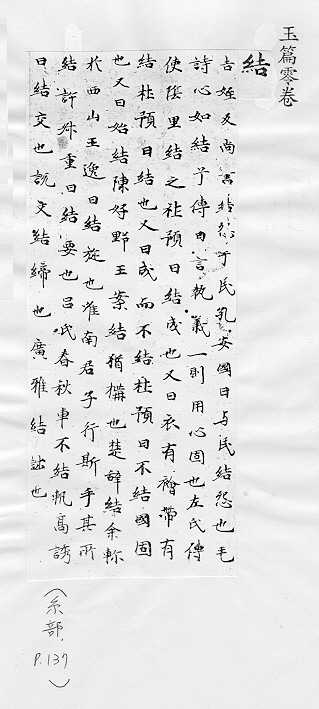 玉篇零卷
結
吉姪反尚書結怨于民孔安國曰与民結怨也毛
詩心如結予傳曰言執義一則用心固也左氏傳
使陰里結之杜預曰結成也又曰衣有襘帶有
結杜預曰結也又曰成而不結杜預曰不結國固
也又曰始結陳好野王案結猶構也楚辞結余軫
於西山王逸曰結旋也淮南君子行斯乎其所
結許叔重曰結要也吕氏春秋車不結軌高誘
曰結交也說文結締也廣雅結詘也
(糸部.
P.137
)